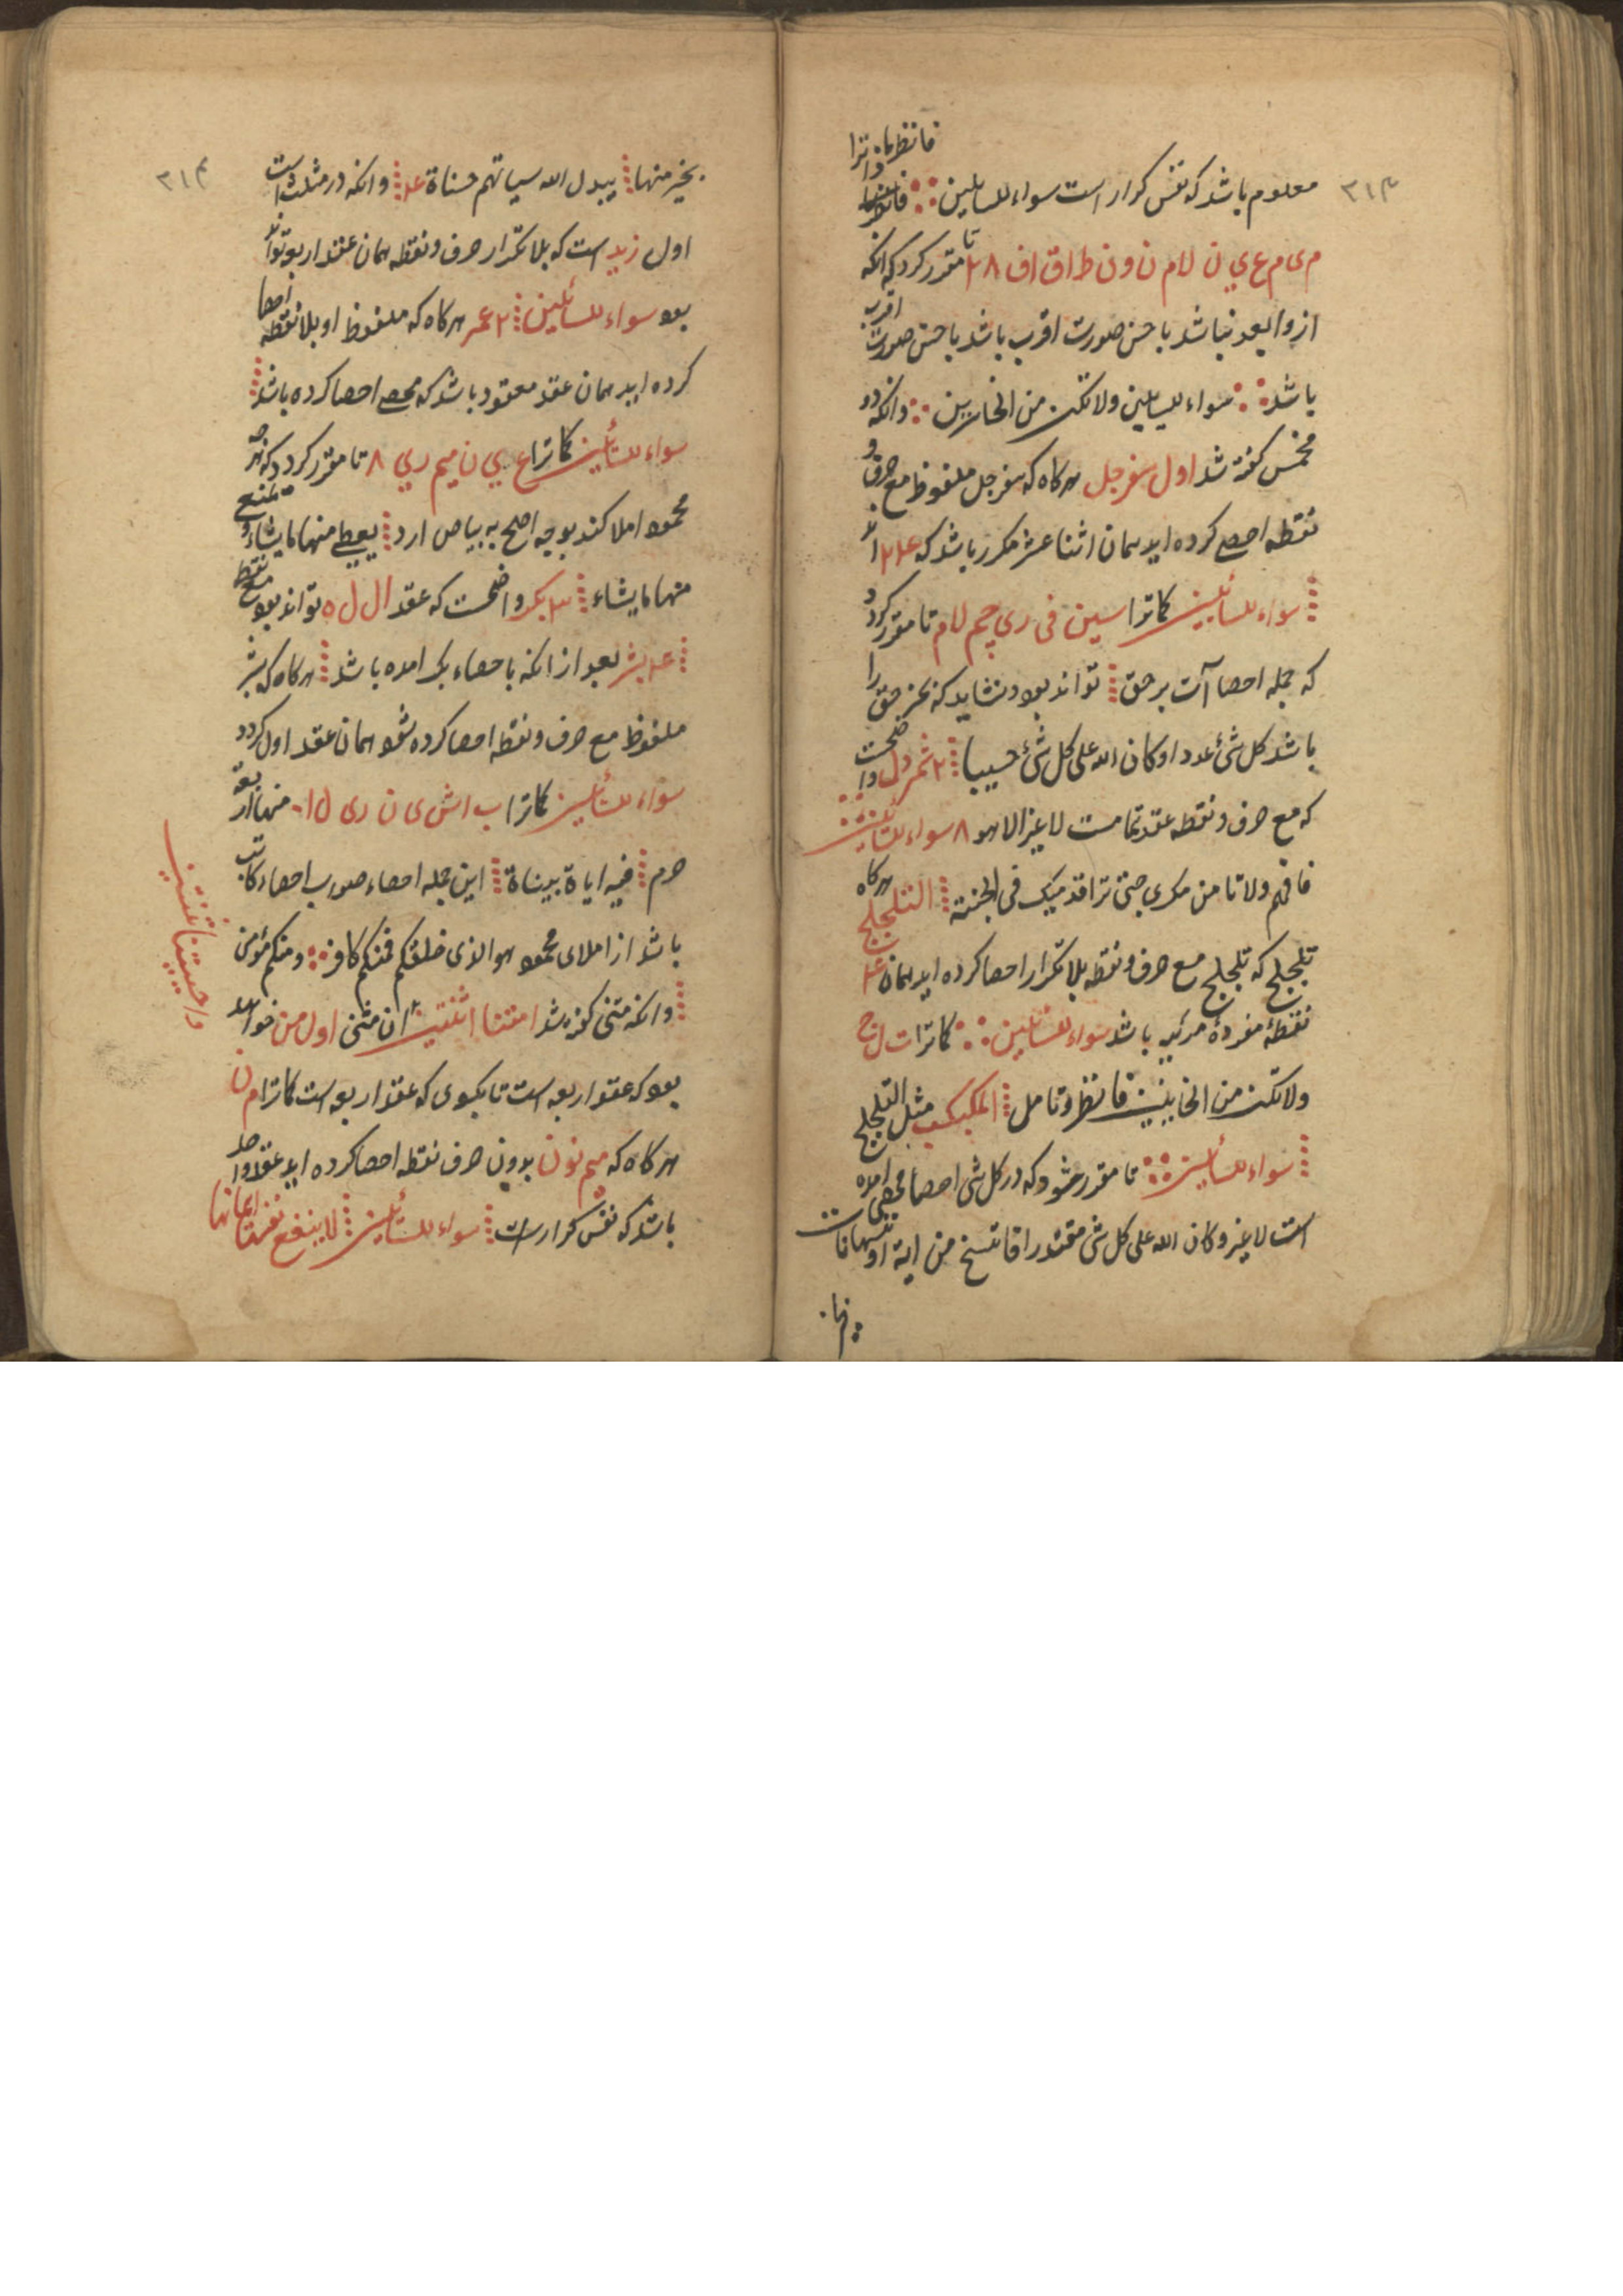 فانظر
۳۱۳
معلوم باشد که نفس کرار است سواء للسایلین فانظر
م ی م ع ی ن لام ن و ن ط ا ق ا ف ۲۸ تا مقرر کردد که انکه
از و ابعد نباشد باحسن صورت اقرب باشد باحسن صورت اقرب
باشد سواء للسایلین ولا تکن من الخاسرین وانکه در
مخمس کفته شد اول سفرجل هرکاه که سفرجل ملفوظ مع حرف و
نقطه احصی کرده اید همان اثنا عشر مکرر باشد که
سواء للسائلین کاترا سین فی ری جیم لام تا مقرر کردد
که جمله احصا آت بر حق تواند بود و نشاید که بغیر حق را
باشد کل شیٔ عددا و کان الله علی کل شیٔ حسیبا ۲ شمردل
که مع حرف و نقطه عقد تمامست لا غیر الا هو ۸ سواء للسائلین
فافهم ولا تا من مکری حتی ترا قدمیک فی الجنة التلجلج هرکاه
تلجلج که تلجلج مع حرف و نقطه بلا تکرار احصا کرده اید همان
نقطهٔ مفردهٔ مرئیه باشد سواء للسائلین کاترا ت ل ج
ولا تکن من الخایبین فانظر و تامل المکبکب مثل التلجلج
سواء للسائلین تا مقرر شود که در کل شی احصا محصی امده
است لا غیر و کان الله علی کل شی مقتدرا ما ننسخ من ایة او ننسها نات
بخیر
۳۱۴
بخیر منها یبدل الله سیاتهم حسناة وانکه در مثلث است
اول زید است که بلا تکرار حرف و نقطه همان عقد اربعه تواند
بود سواء للسائلین ۲ عمر هرکاه که ملفوظ او بلا نقطه احصا
کرده اید همان عقد معقود باشد که محصی احصا کرده باشد
سواء للسائلین کاترا ع ی ن میم ری ۸ تا مقرر کردد که هرچه
محمود املا کند بوجه اصلح به بیاض ارد یعطی منها ما یشاء و یمنع
منها ما یشاء ۳ بکر واضحست که عقد ال ل ه تواند بود مع نقط
بشر بعد از انکه باحصاء بکر امده باشد هرکاه که بشر
ملفوظ مع حرف و نقطه احصا کرده شود همان عقد اول کردد
سواء للسائلین کاترا ب ا ش ی ن ر ی منها اربعة
حرم فیه ایاة بیناة این جمله احصاء صورب احصاء کاتب
باشد از املای محمود هو الذی خلقکم فمنکم کافر و منکم مؤمن
وانکه مثنی کفته شد امتنا اثنتین ان مثنی اول من خواهد
بود که عقد اربعه است تا بکوی که عقد اربعه است کاترا م ن
هرکاه که میم نون بدون حرف نقطه احصا کرده اید عقد واحد
باشد که نفس کرار است سواء للسائلین لا ینفع نفسا ایمانها
واحییتنا اثنتین